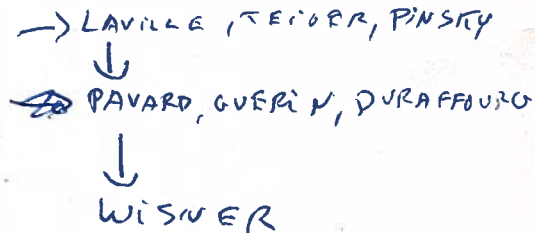 → LAVILLE, TEIGER, PINSKY
↓
PAVARD, GUERIN, DURAFFOURG
↓
WISNER